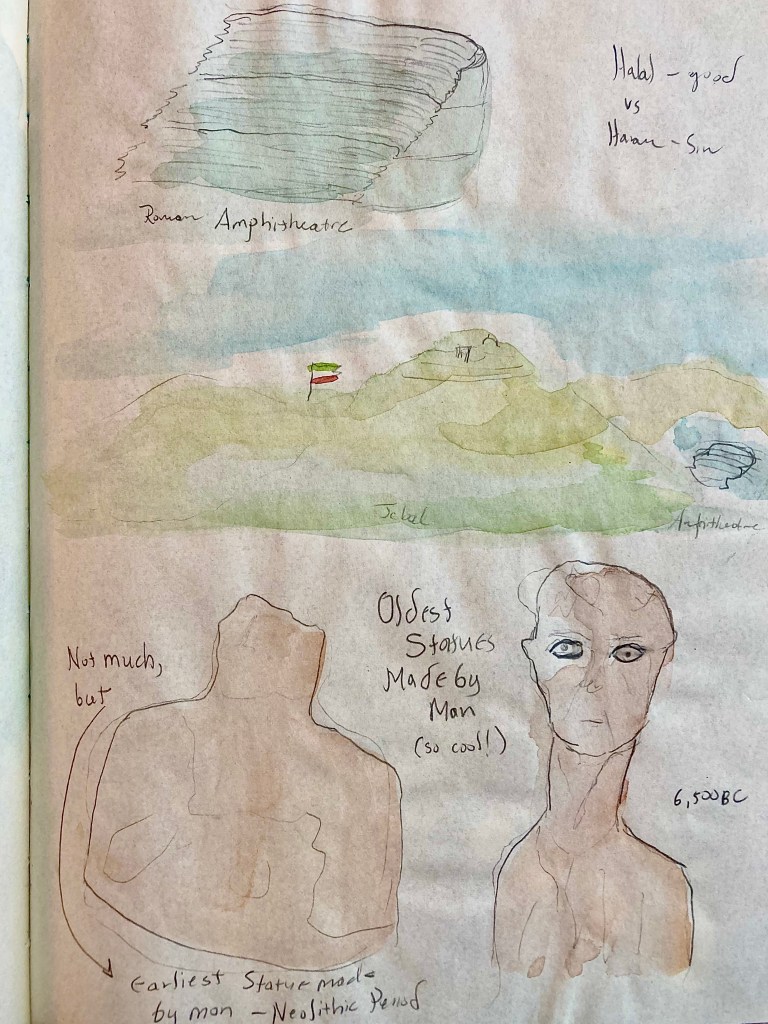 Halal - good
vs
Haram - Sin
Roman Amphitheatre
Jebel
Amphitheatre
Oldest
Statues
Made by
Man
(so cool!)
Not much,
but
6,500 BC
Earliest Statue made
by man - Neolithic Period